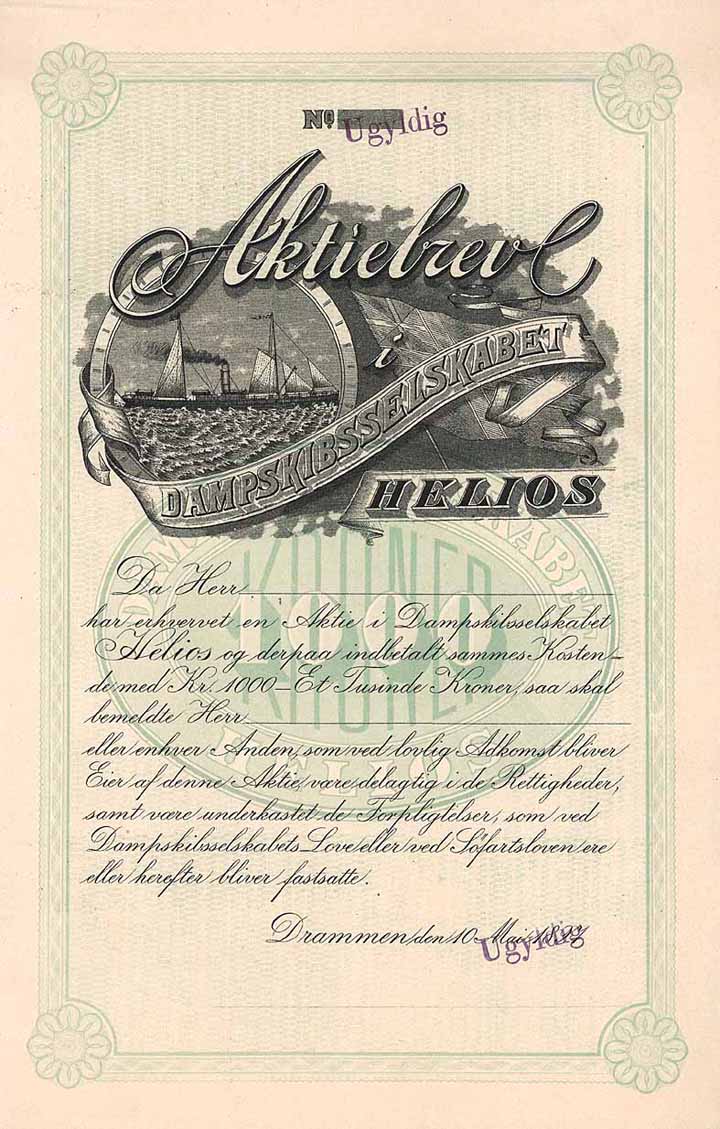 Nº Ugyldig
Aktiebrev
i
DAMPSKIBSSELSKABET
HELIOS
DAMPSKIBSSELSKABET
KRONER
1000
KRONER
HELIOS
Da Herr
har erhvervet en Aktie i Dampskibsselskabet
Helios og derpaa indbetalt sammes Kosten-
de med Kr. 1000 - Et Tusinde Kroner, saa skal
bemeldte Herr
eller enhver Anden, som ved lovlig Adkomst bliver
Eier af denne Aktie, være delagtig i de Rettigheder,
samt være underkastet de Forpligtelser, som ved
Dampskibsselskabets Love eller ved Söfartsloven ere
eller herefter bliver fastsatte.
Drammen, den 10. Mai
Ugyldig